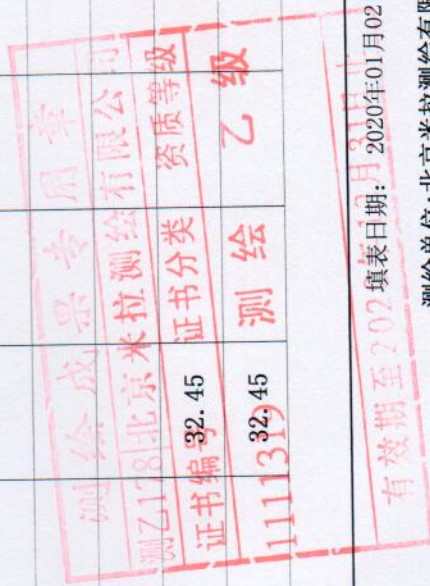 测绘成果专用章
测乙178|北京米拉测绘有限公司
证书编号 证书分类 资质等级
1111319 测绘 乙级
32.45
32.45
填表日期: 2020年01月02
测绘单位:北京米拉测绘有限